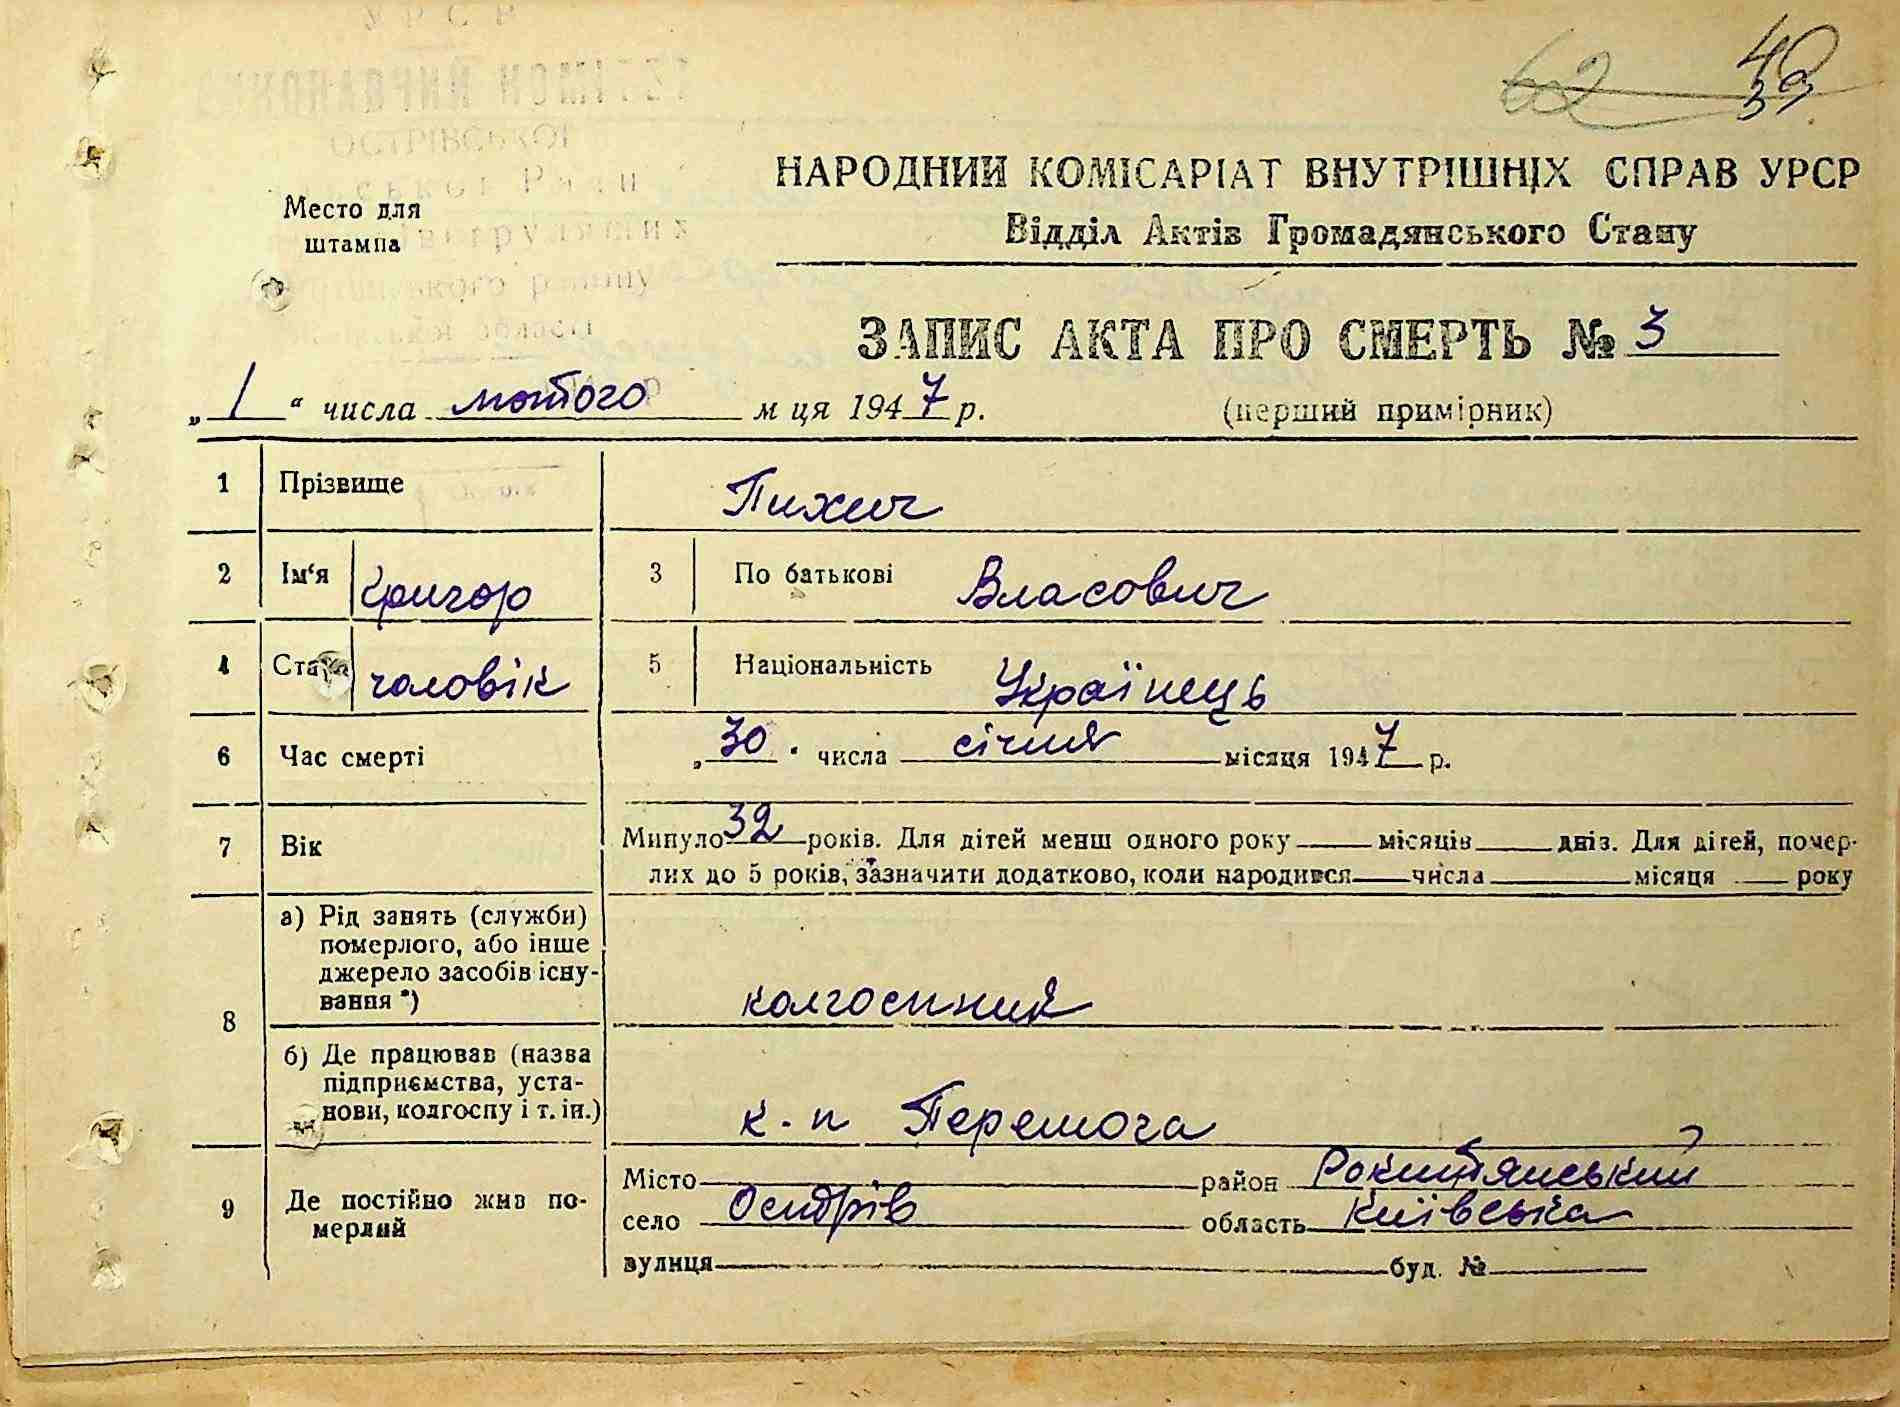 62 43
39
НАРОДНИЙ КОМІСАРІАТ ВНУТРІШНІХ СПРАВ УРСР
Відділ Актів Громадянського Стану
Место для
штампа
ЗАПИС АКТА ПРО СМЕРТЬ № 3
„ 1 “ числа лютого м ця 1947 р. (перший примірник)
1 Прізвище Пихич
2 Ім‘я Григор 3 По батькові Власович
4 Стать чоловік 5 Національність Українець
6 Час смерті „ 30 " числа січня місяця 1947 р.
7 Вік Минуло 32 років. Для дітей менш одного року місяців днів. Для дітей, помер-
лих до 5 років, зазначити додатково, коли народився числа місяця року
8 а) Рід занять (служби)
померлого, або інше
джерело засобів існу-
вання *) колгоспний
б) Де працював (назва
підприємства, уста-
нови, колгоспу і т. ін.) к-п Перемога
9 Де постійно жив по-
мерлий
Місто район Рокитянський
село Острів область Київська
вулиця буд. №